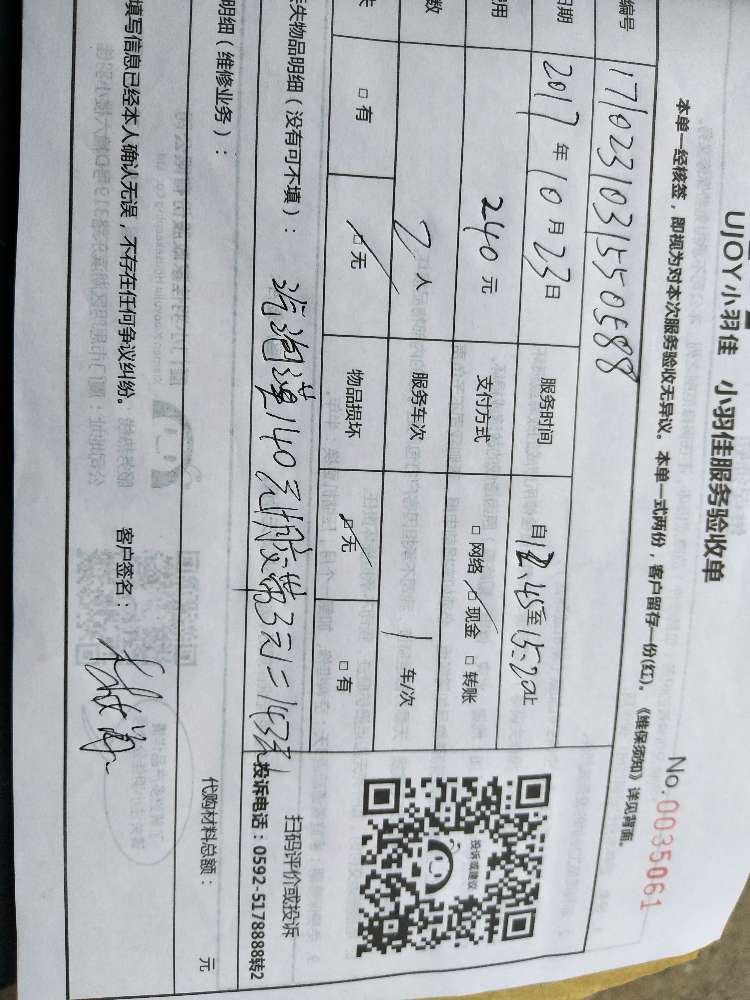 UJOY小羽佳 小羽佳服务验收单
No:0035061
本单一经核签，即视为对本次服务验收无异议。本单一式两份，客户留存一份(红)。《维保须知》详见背面。
编号 171023103155058８
日期 2017年10月23日 服务时间 自12.45至15:20止
用 240元 支付方式 □网络 □现金 □转账
数 2人 服务车次 1车/次
□有 □无 物品损坏 □无 □有
投诉或建议
扫码评价或投诉
投诉电话：0592-5178888转2
失物品明细（没有可不填）： 140元 胶带3元=143元
明细（维修业务）：
代购材料总额： 元
填写信息已经本人确认无误，不存在任何争议纠纷。 客户签名：